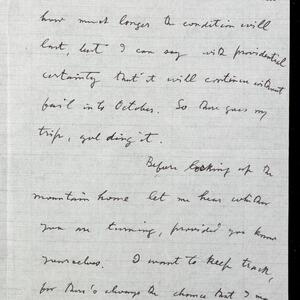 how much longer the condition will
last, but I can say with providential
certainty that it will continue without
fail into October. So there goes my
trip, gol ding it.
Before locking up the
mountain home let me hear whither
you are turning, provided you know
yourselves. I want to keep track,
for there's always the chance that I may